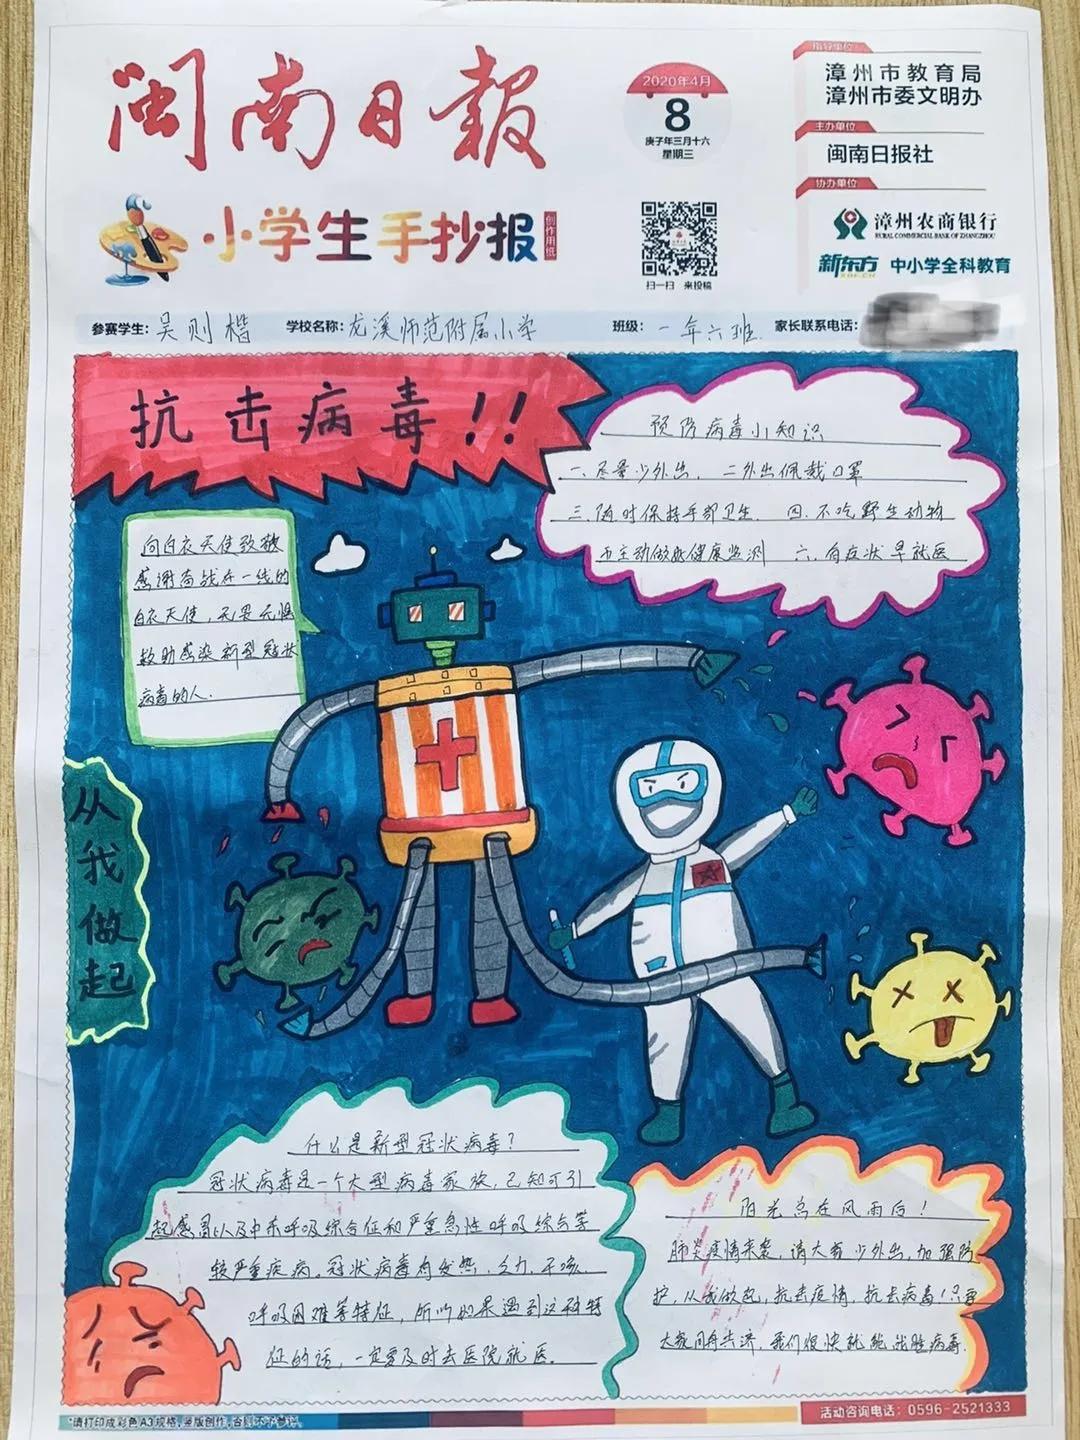 闽南日报
2020年4月
8
庚子年三月十六
星期三
指导单位
漳州市教育局
漳州市委文明办
主办单位
闽南日报社
协办单位
漳州农商银行
RURAL COMMERCIAL BANK OF ZHANGZHOU
新东方
XDF.CN
中小学全科教育
小学生手抄报
创作用纸
扫一扫 来投稿
参赛学生：吴则楷
学校名称：龙溪师范附属小学
班级：一年六班.
家长联系电话：
抗击病毒!!
预防病毒小知识
一.尽量少外出. 二外出佩戴口罩
三.随时保持手部卫生. 四.不吃野生动物
五主动做好健康监测 六.有症状早就医
向白衣天使致敬
感谢奋战在一线的
白衣天使，无畏无惧
救助感染新型冠状
病毒的人.
从我做起
什么是新型冠状病毒？
冠状病毒是一个大型病毒家族，已知可引
起感冒以及中东呼吸综合征和严重急性呼吸综合等
较严重疾病。冠状病毒有发热、乏力、干咳、
呼吸困难等特征，所以如果遇到这种特
征的话，一定要及时去医院就医。
阳光总在风雨后！
肺炎疫情来袭，请大家少外出，加强防
护，从我做起，抗击疫情，抗击病毒！只要
大家同舟共济，我们很快就能战胜病毒.
*请打印成彩色A3规格，竖版创作，否则不予参评。
活动咨询电话：0596-2521333